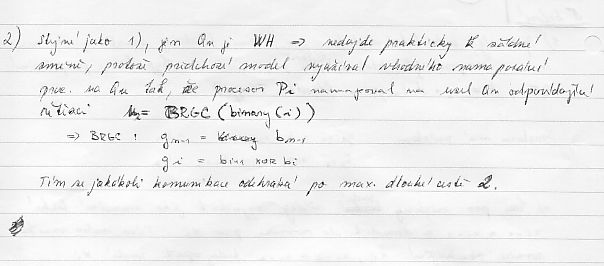 2) Stejné jako 1), jen Qn je WH => nedojde prakticky k žádné
změně, protože předchozí model využíval vhodného namapování
proc. na Qn tak, že procesor Pi namapoval na uzel Qn odpovídající
= BRGC (binary(i))
=> BRGC : gn-1 = bn-1
gi = bi+1 XOR bi
Tím se jakákoli komunikace odehrává po max. dlouhé cestě 2.